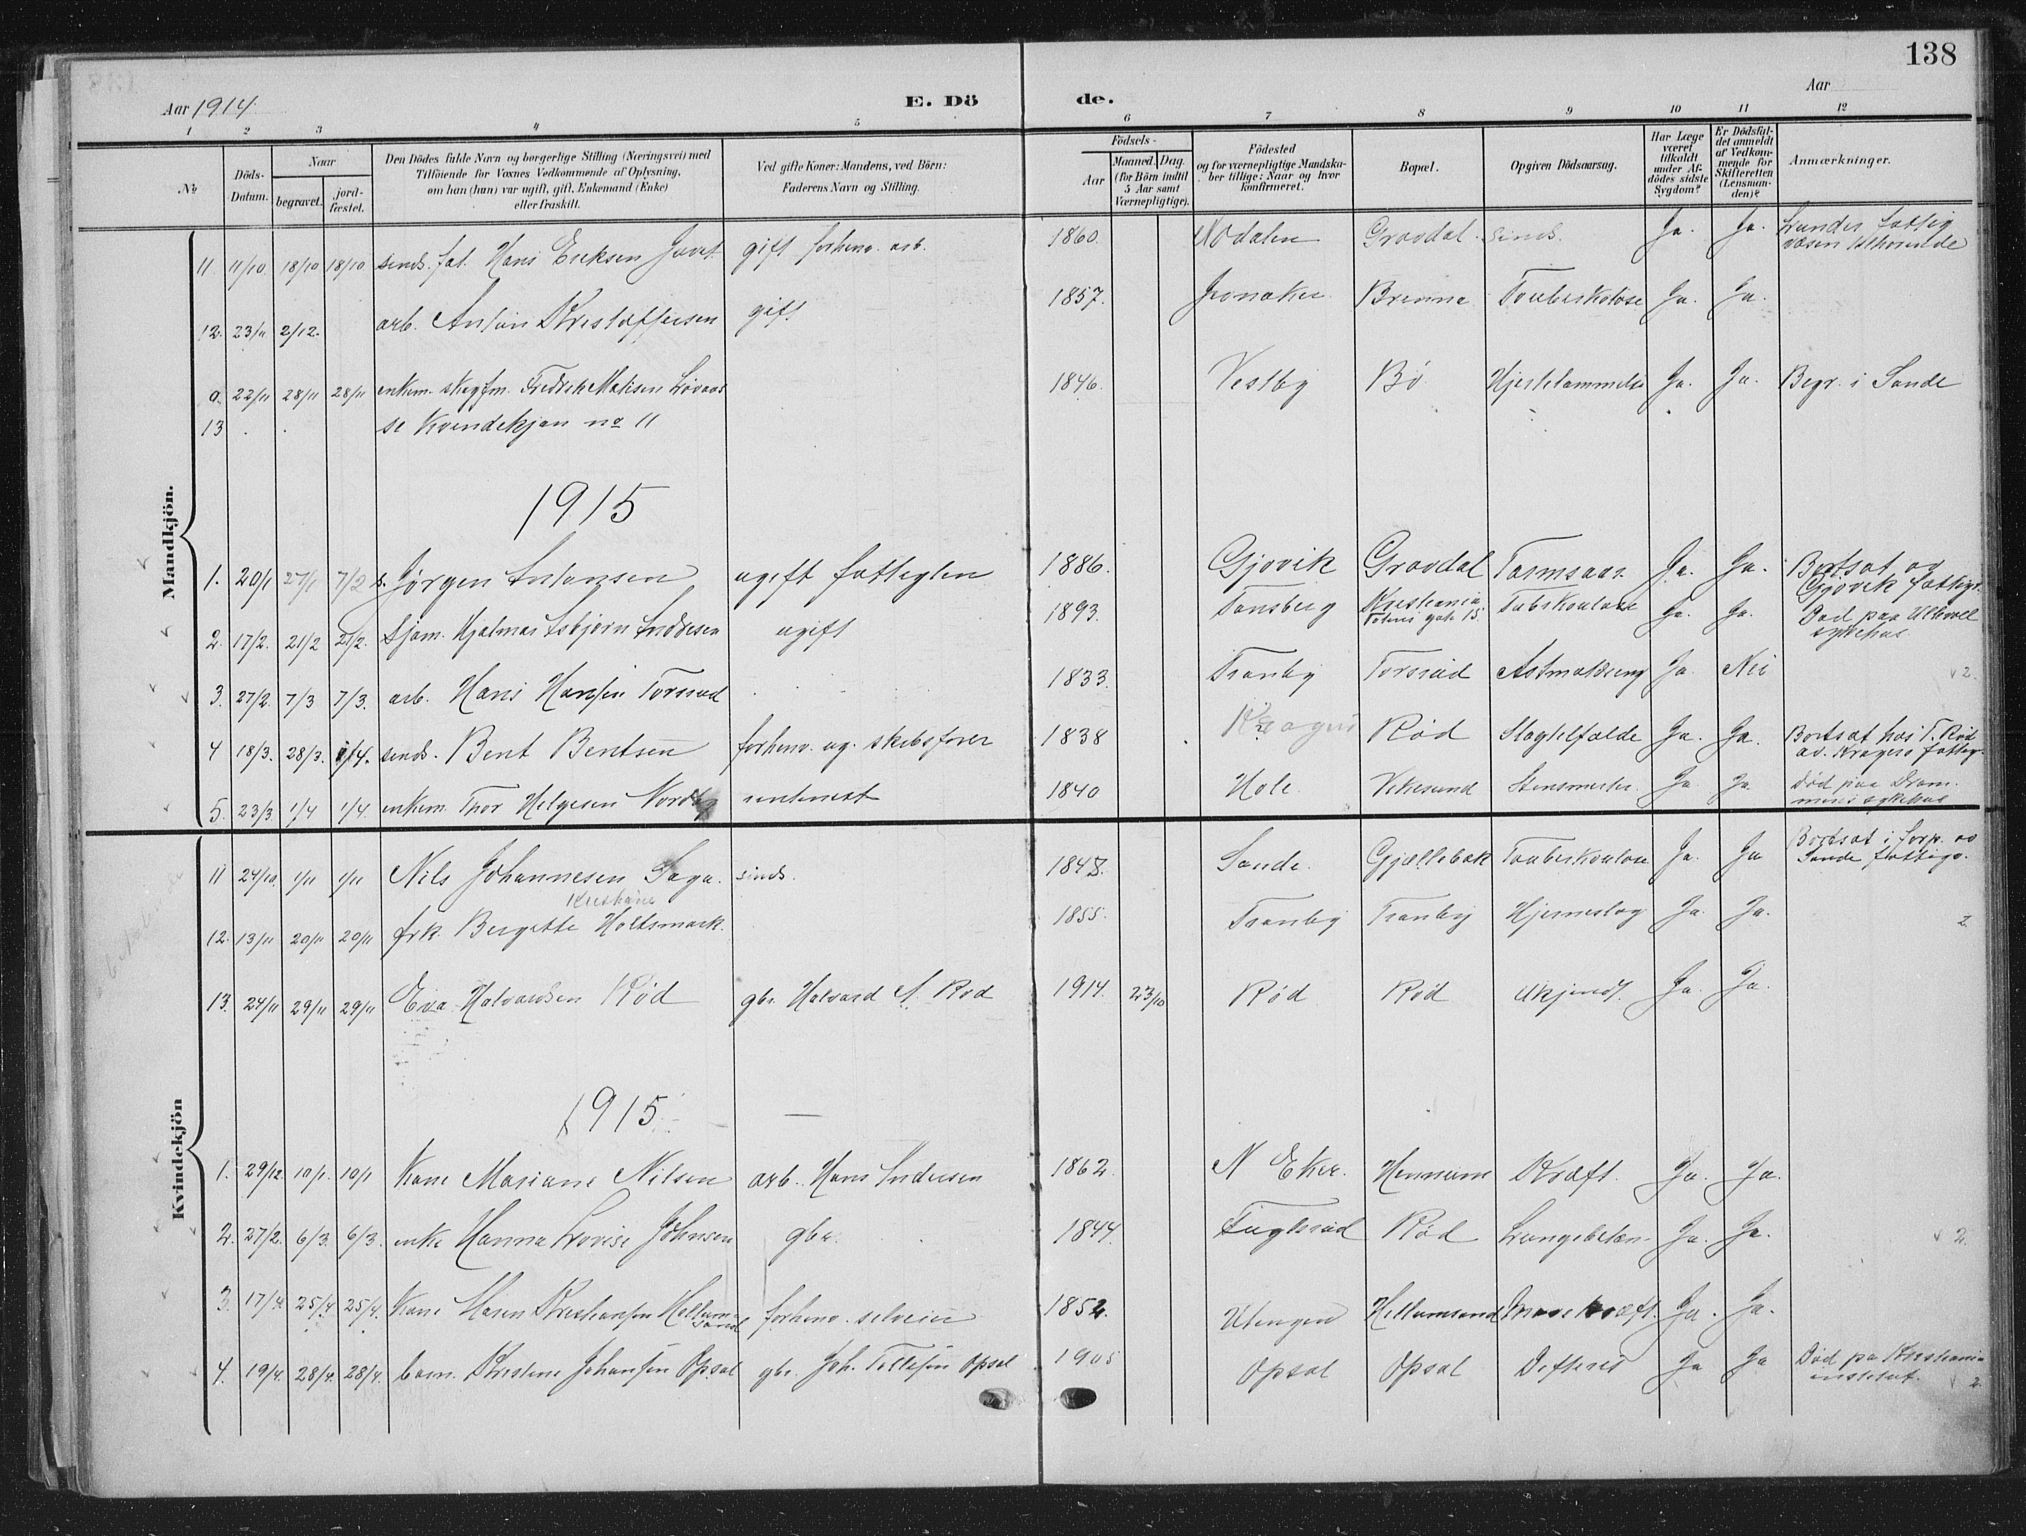 138
Aar 1914.
E. Dö de.
Aar
1 2 3 4 5 6 7 8 9 10 11 12
No
Döds-Datum.
Naar
begravet.
jord-fæstet.
Den Dödes fulde Navn og borgerlige Stilling (Næringsvei) med
Tilföiende for Voxnes Vedkommende af Oplysning,
om han (hun) var ugift, gift, Enkemand (Enke)
eller fraskilt.
Ved gifte Koner: Mandens, ved Börn:
Faderens Navn og Stilling.
Födsels-
Aar
Maaned. Dag.
(for Börn indtil
5 Aar samt
Værnepligtige).
Födested
og for værnepligtige Mandska-
ber tillige: Naar og hvor
konfirmeret.
Bopæl.
Opgiven Dödsaarsag.
Har Læge
været
tilkaldt
under Af-
dödes sidste
Sygdom?
Er Dödsfal-
det anmeldt
af Vedkom-
mende for
Skifteretten
(Lensman-
den)?
Anmærkninger.
Mandkjön.
11 11/10 18/10 18/10 sinds. fat. Hans Eriksen gift forhenv. arb. 1860. Grovdal. sinds. Ja. Ja.
12. 23/11 2/12. arb. Anton Kristoffersen gift 1857. Brenna Tuberkulose Ja. Ja.
a. 22/11 28/11 28/11 enkem. Fredrik Løvaas 1846. Vestby Bø Hjertelammelse Ja. Ja. Begr. i Sande
13 se Kvindekjøn no 11
1915
1. 20/1 27/1 7/2 s. Jørgen Antonsen ugift fattiglem 1886. Gjøvik Grovdal Ja. Ja. Bortsat av
Gjøvik fattigv.
2. 17/2. 21/2 21/2. Sjøm. Hjalmar Asbjørn Andresen ugift 1893. Tønsberg Kristiania
gate 15. Tuberkulose Ja. Ja. Død paa Ullevol
sykehus.
3. 27/2. 7/3 7/3. arb. Hans Hansen Torsrud 1833. Tranby Torsrud Ja Nei 2.
4 18/3. 28/3. 1/4. sinds. Bent Bentsen forhenv. ug. skibsfører 1838 Kragerø Rød Slagtilfælde Ja. Ja. Bortsat hos T. Rød
av. Kragerø fattigv.
5. 23/3. 1/4 1/4. enkem. Thor Helgesen Nordby 1840 Hole. Vikesund Stensmerter. Ja. Ja Død paa Dram-
mens sykehus
Kvindekjön
11 24/10. 1/11 1/11 Nils Johannesen Saga. sinds. 1848. Sande. Gjellebæk Tuberkulose Ja. Ja Bortsat i av
Sande fattigv.
Kristiane
12. 13/11 20/11 20/11 frk. Bergitte Holtsmark. 1855. Tranby Tranby Hjerneslag Ja. Ja. 2.
13. 24/11 29/11 29/11 Eva Halvardsen Rød gbr. Halvard A. Rød 1914. 23/10 Rød Rød Ukjendt. Ja. Ja.
1915
1. 29/12. 10/1. 10/1 Kone Mariane Nilsen arb. Hans Andersen 1862. N Eker. Hennum Kræft. Ja. Ja.
2. 27/2. 6/3. 6/3. enke Hanna Lovise Johnsen gbr. 1844. Fuglerud Rød Lungebetæn. Ja. Ja. 2.
3. 17/4. 25/4. 25/4. Kone Maren Kristiansen Hellum-
sand forhenv. selveier 1852. Utengen Hellumsund Mavekræft. Ja. Ja.
4. 19/4. 28/4. 28/4. barn. Kristine Johansen Opsal gbr. Joh. Tollefsen Opsal 1905 Opsal Opsal Difteri Ja Ja Død paa Kristiania
institut. 2.